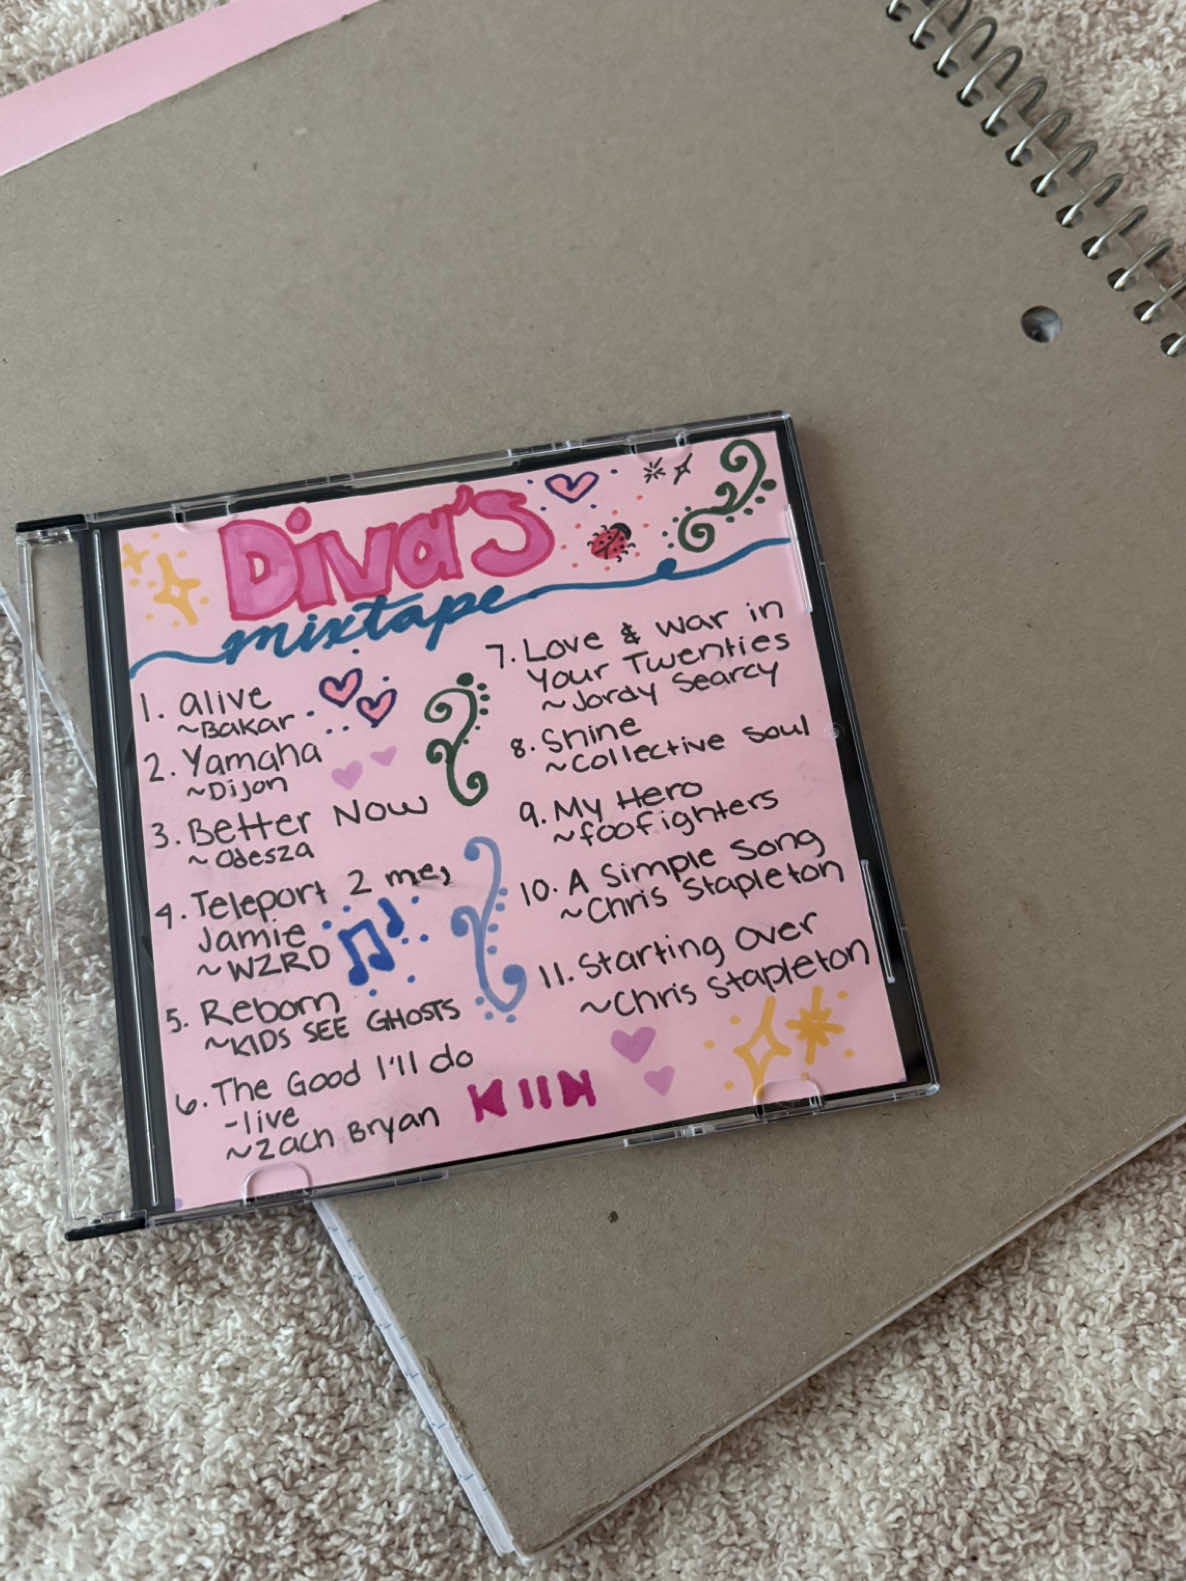 Diva's
mixtape
1. alive
~Bakar
2. Yamaha
~Dijon
3. Better Now
~Odesza
4. Teleport 2 me,
Jamie
~WZRD
5. Reborn
~KIDS SEE GHOSTS
6. The Good I'll do
-live
~Zach Bryan
7. Love & war in
Your Twenties
~Jordy Searcy
8. Shine
~Collective Soul
9. My Hero
~foofighters
10. A Simple Song
~Chris Stapleton
11. Starting Over
~Chris Stapleton